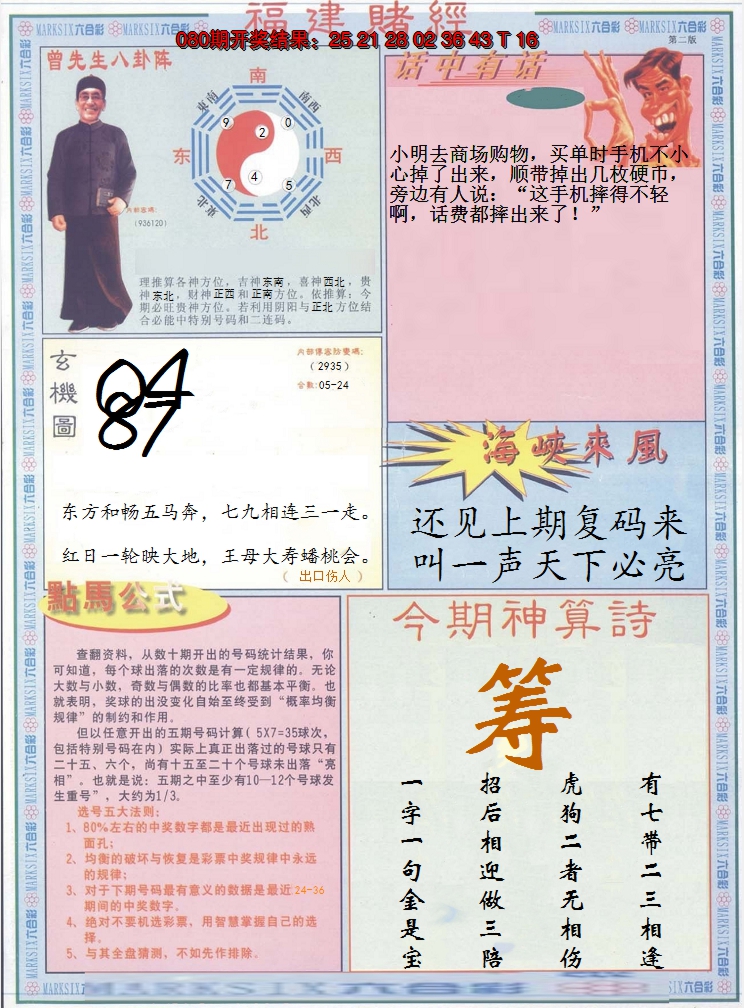 福建賭經
080期开奖结果：25 21 28 02 36 43 T 16
第二版
MARKSIX六合彩
曾先生八卦阵
南
东南
南西
东
西
東北
北西
北
9
2
0
7
4
5
内部密碼:
(936120)
理推算各神方位，吉神东南，喜神西北，贵
神东北，财神正西和正南方位。依推算：今
期必旺贵神方位。若利用阴阳与正北方位结
合必能中特别号码和二连码。
话中有话
小明去商场购物，买单时手机不小
心掉了出来，顺带掉出几枚硬币，
旁边有人说：“这手机摔得不轻
啊，话费都摔出来了！”
玄機圖
04
87
(2935)
合數:05-24
东方和畅五马奔，七九相连三一走。
红日一轮映大地，王母大寿蟠桃会。
（ 出口伤人 ）
海峽來風
还见上期复码来
叫一声天下必亮
點馬公式
查翻资料，从数十期开出的号码统计结果，你
可知道，每个球出落的次数是有一定规律的。无论
大数与小数，奇数与偶数的比率也都基本平衡。也
就表明，奖球的出没变化自始至终受到“概率均衡
规律”的制约和作用。
但以任意开出的五期号码计算( 5X7=35球次，
包括特别号码在内) 实际上真正出落过的号球只有
二十五、六个，尚有十五至二十个号球未出落“亮
相”。也就是说：五期之中至少有10—12个号球发
生重号”，大约为1/3。
选号五大法则：
1、80%左右的中奖数字都是最近出现过的熟
面孔；
2、均衡的破坏与恢复是彩票中奖规律中永远
的规律；
3、对于下期号码最有意义的数据是最近24-36
期间的中奖数字。
4、绝对不要机选彩票，用智慧掌握自己的选
择。
5、与其全盘猜测，不如先作排除。
今期神算詩
筹
有七带二三相逢
虎狗二者无相伤
招后相迎做三陪
一字一句金是宝